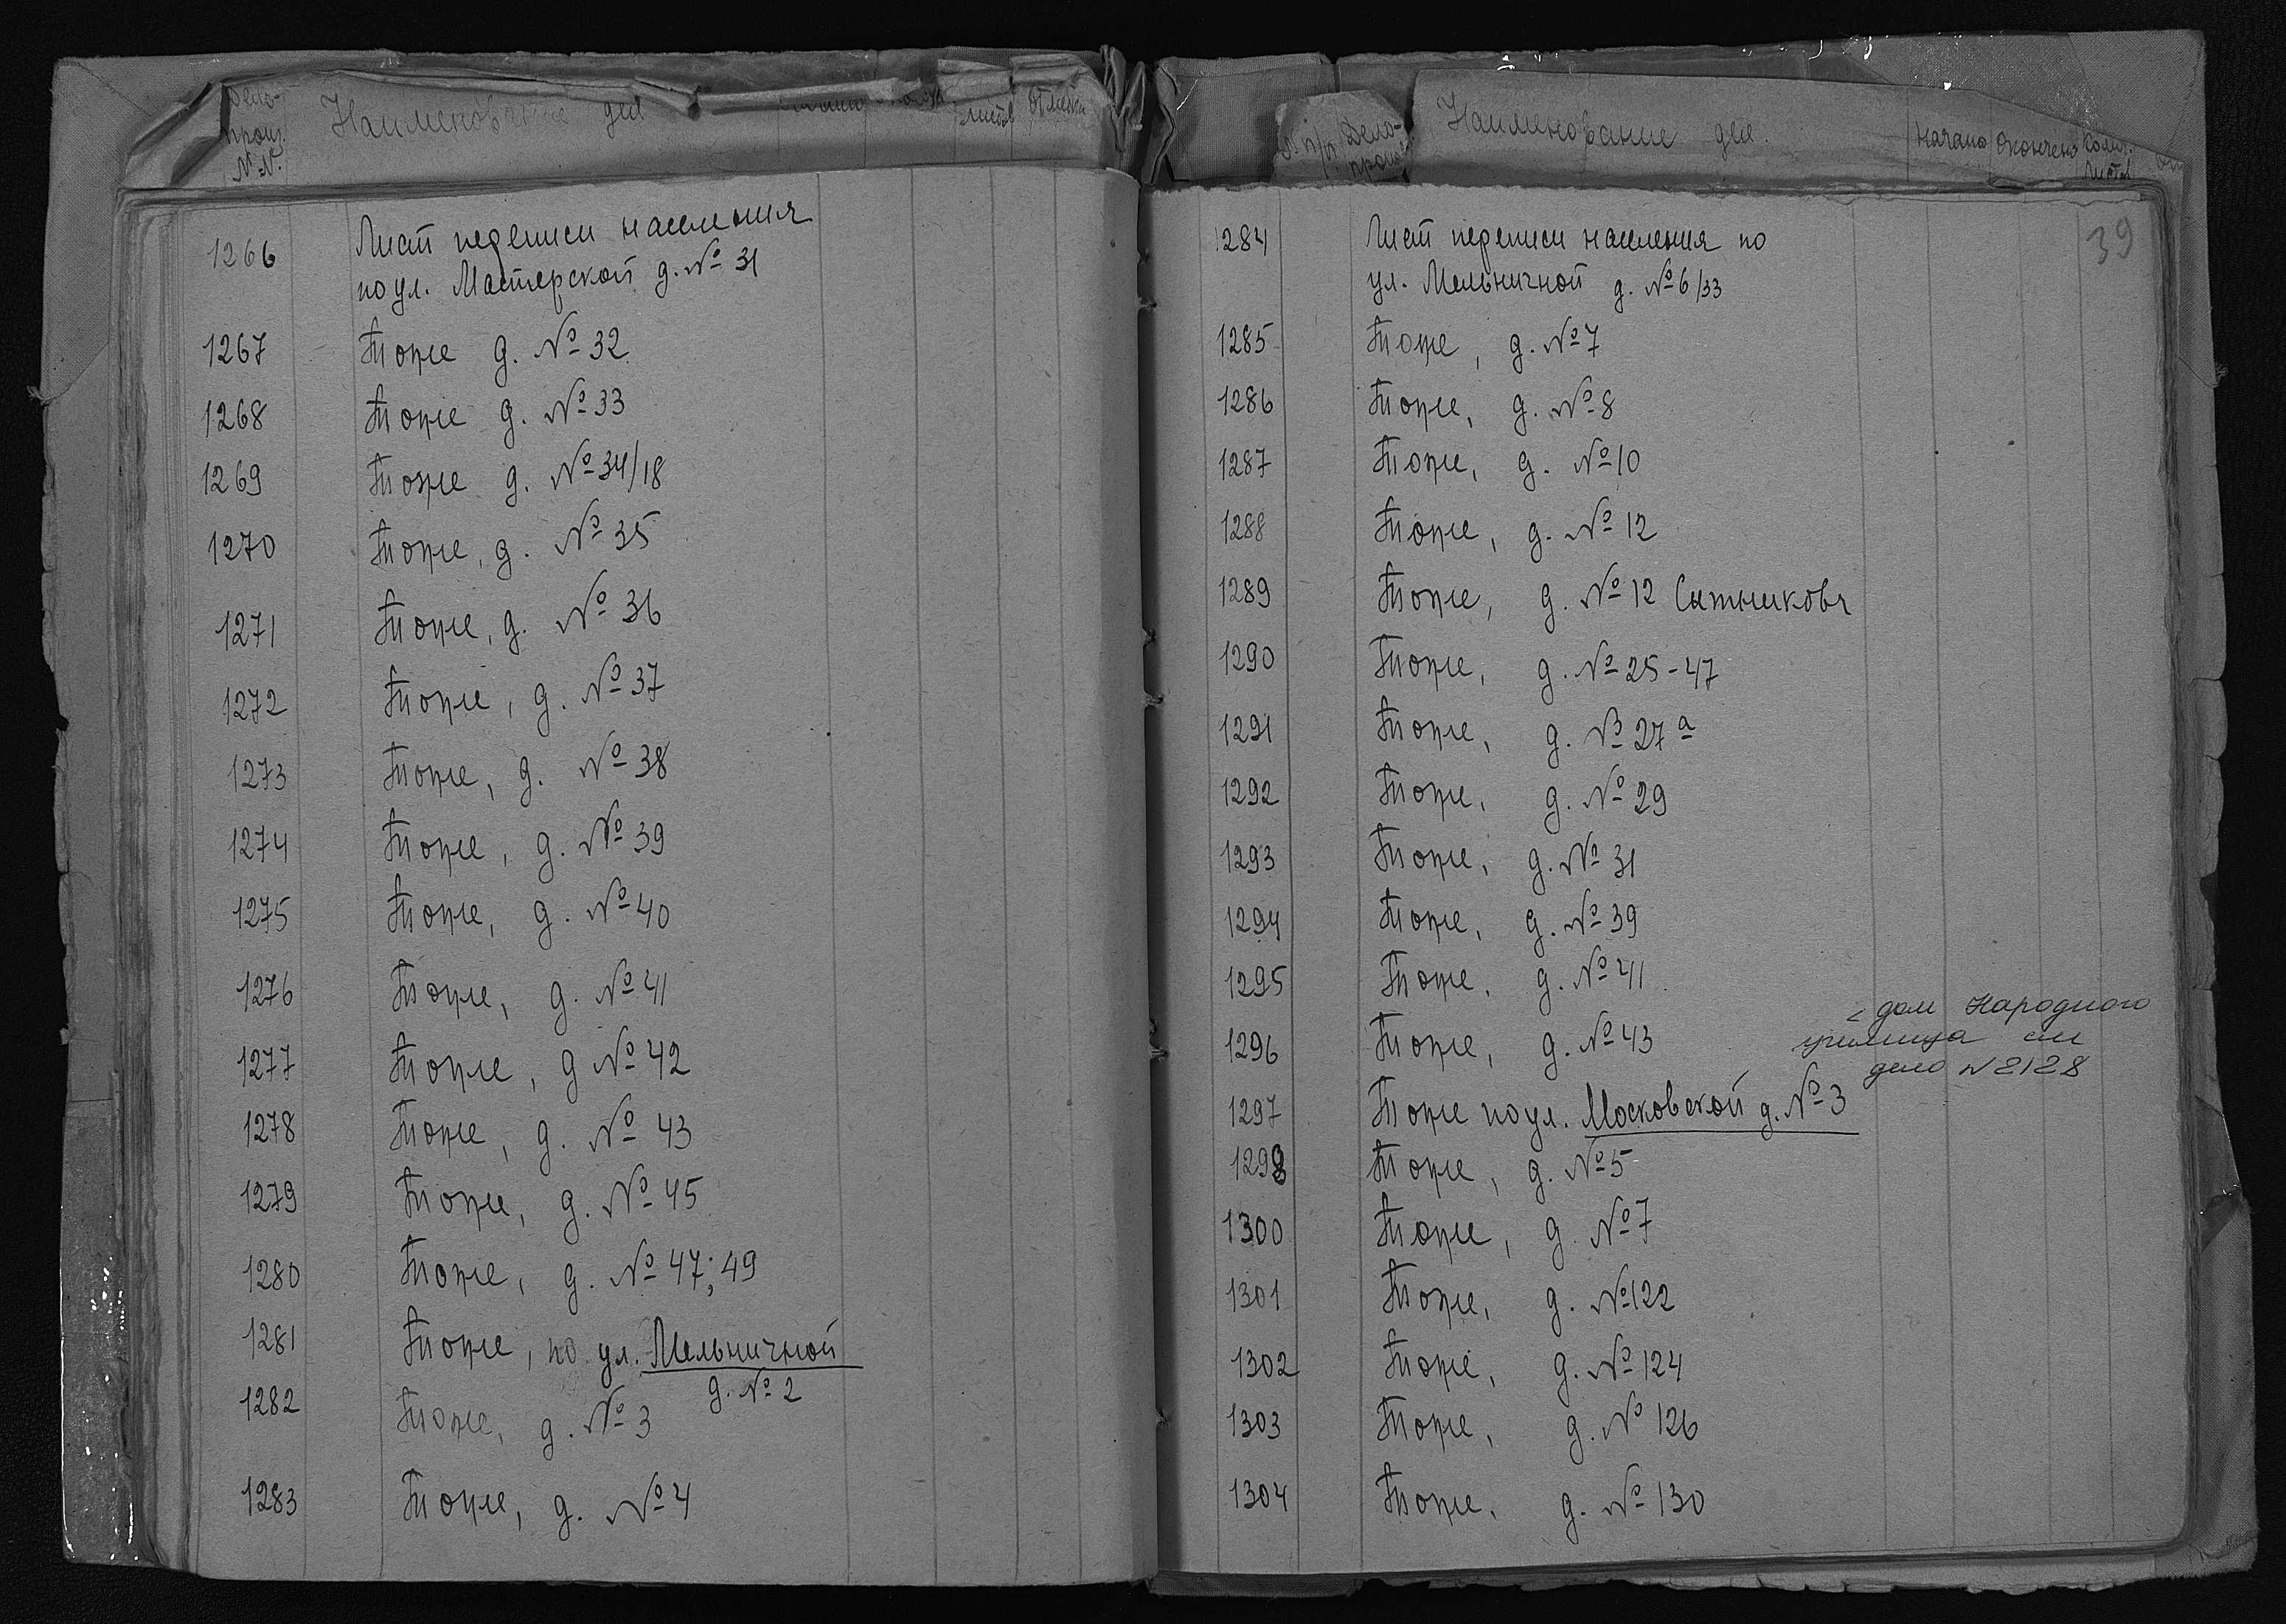 Дело-
произ.
№№.
Наименование дел
листов
отметки
1266 Лист переписи населения
по ул. Мастерской д. № 31
1267 Тоже д. № 32
1268 Тоже д. № 33
1269 Тоже д. № 34/18
1270 Тоже, д. № 35
1271 Тоже, д. № 36
1272 Тоже, д. № 37
1273 Тоже, д. № 38
1274 Тоже, д. № 39
1275 Тоже, д. № 40
1276 Тоже, д. № 41
1277 Тоже, д № 42
1278 Тоже, д. № 43
1279 Тоже, д. № 45
1280 Тоже, д. № 47; 49
1281 Тоже, по ул. Мельничной
д. № 2
1282 Тоже, д. № 3
1283 Тоже, д. № 4
п/п Дело-
произ.
Наименование дел.
Начато Окончено Колич.
листов
39
1284 Лист переписи населения по
ул. Мельничной д. № 6/33
1285 Тоже, д. № 7
1286 Тоже, д. № 8
1287 Тоже, д. № 10
1288 Тоже, д. № 12
1289 Тоже, д. № 12 Сытникова
1290 Тоже, д. № 25-47
1291 Тоже, д. № 27а
1292 Тоже, д. № 29
1293 Тоже, д. № 31
1294 Тоже, д. № 39
1295 Тоже, д. № 41
1296 Тоже, д. № 43
дом Народного
училища см
дело N 2128
1297 Тоже по ул. Московской д. № 3
1298 Тоже, д. № 5
1300 Тоже, д. № 7
1301 Тоже, д. № 122
1302 Тоже, д. № 124
1303 Тоже, д. № 126
1304 Тоже, д. № 130